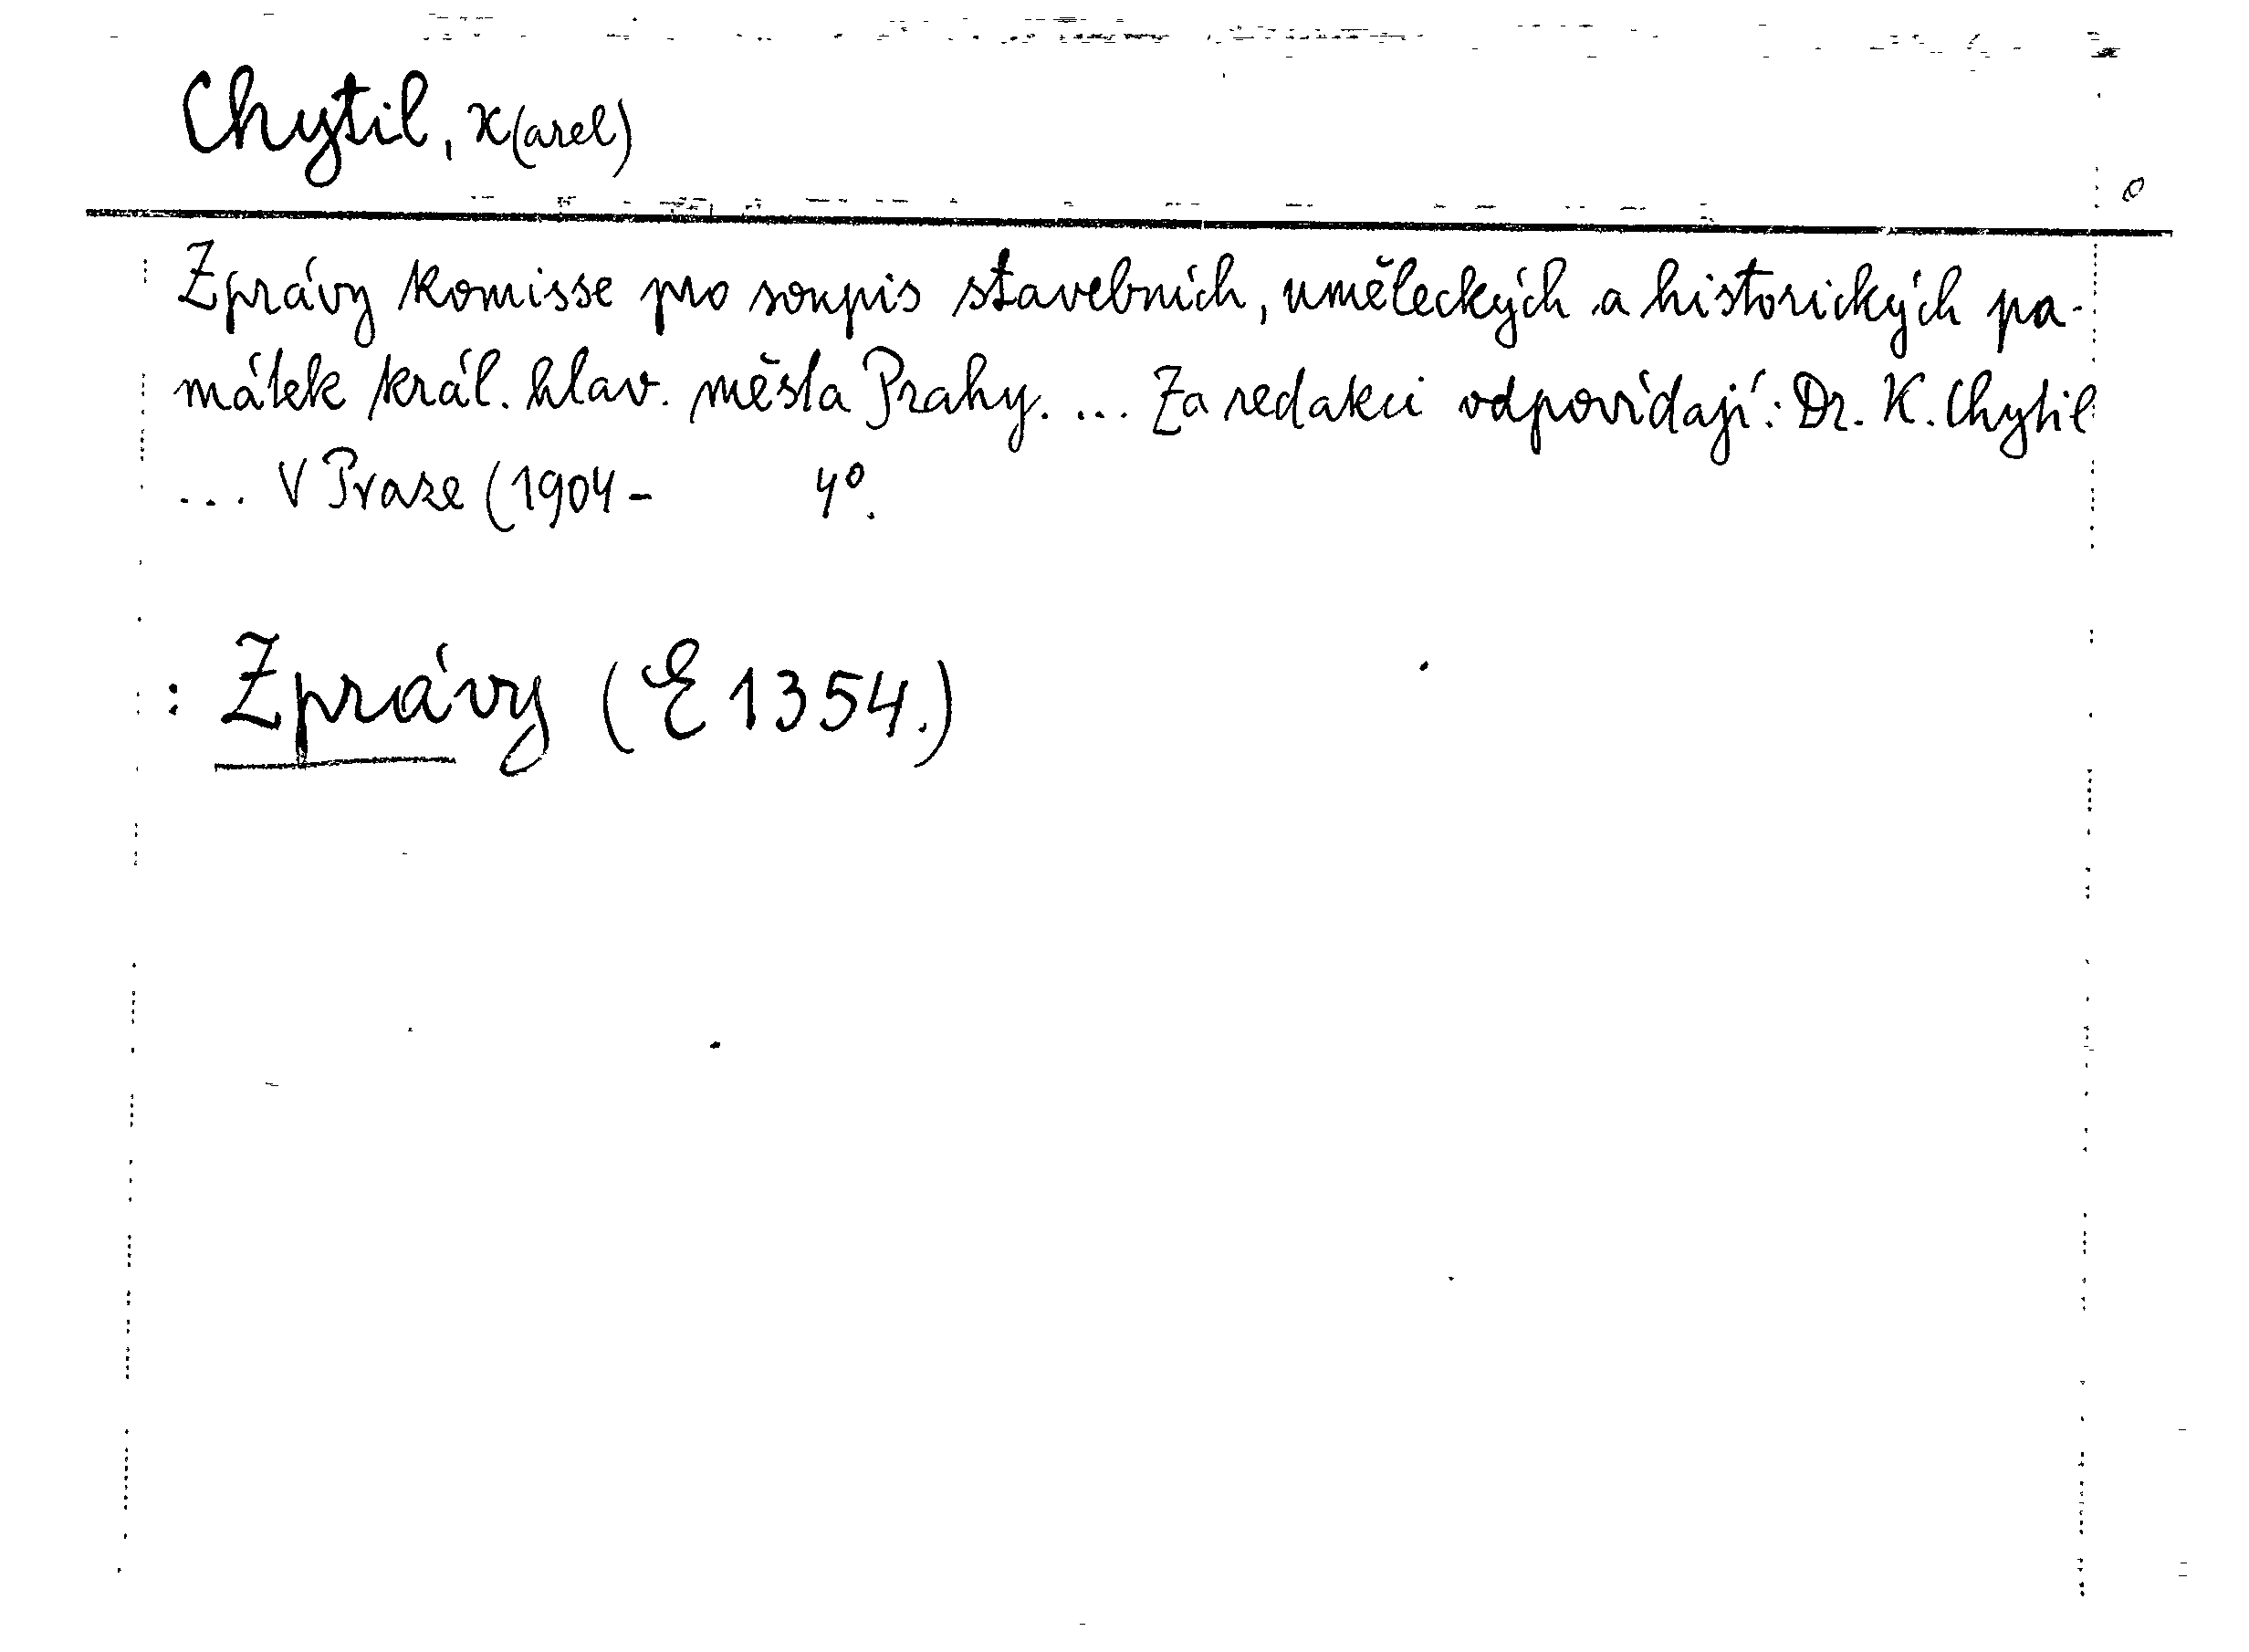 Chytil, K(arel)
o
Zprávy komisse pro soupis stavebních, uměleckých a historických pa-
mátek král. hlav. města Prahy. ... Za redakci odpovídají: Dr. K. Chytil
... V Praze (1904 - 4°.
: Zprávy (E 1354.)